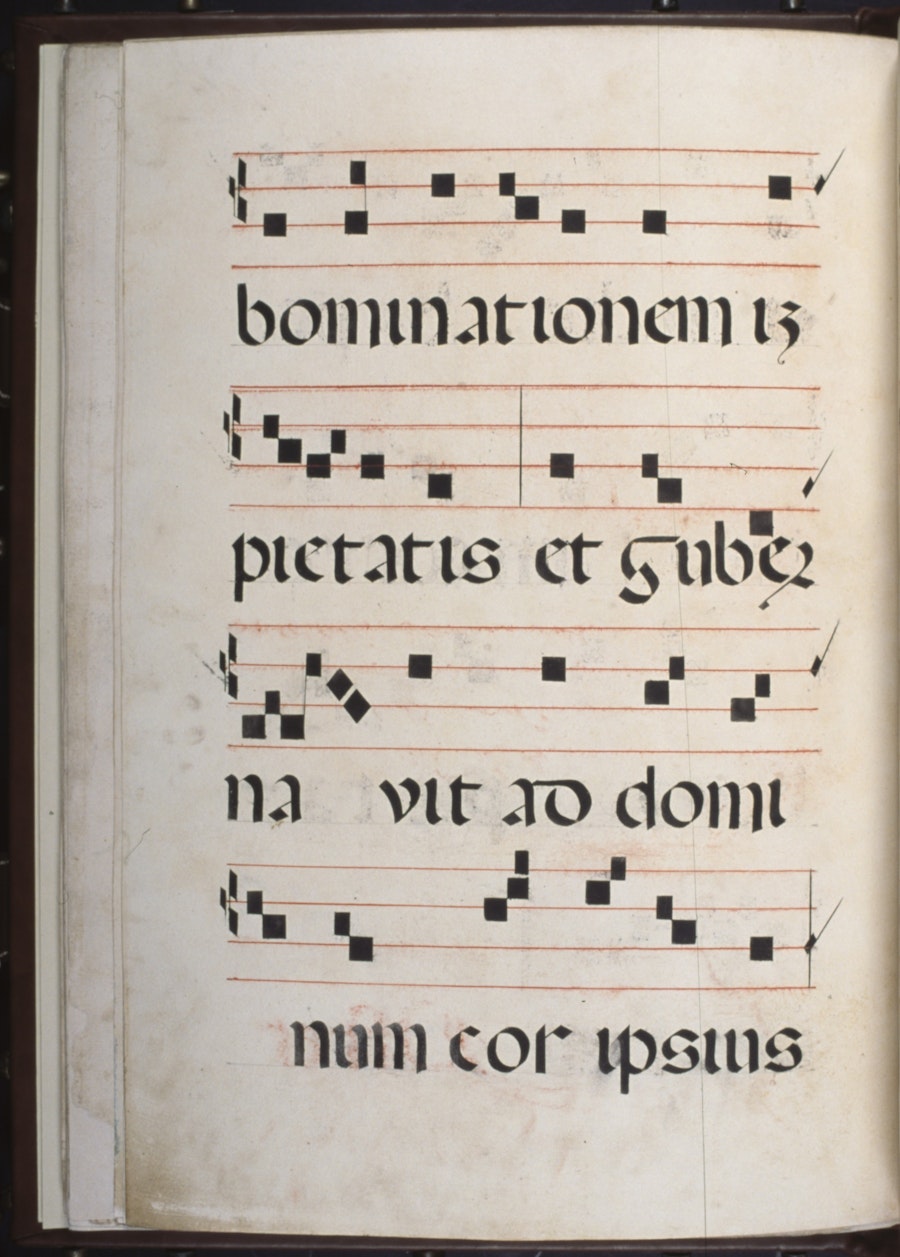 bominationem iz
pietatis et guber
na vit ad domi
num cor ipsius